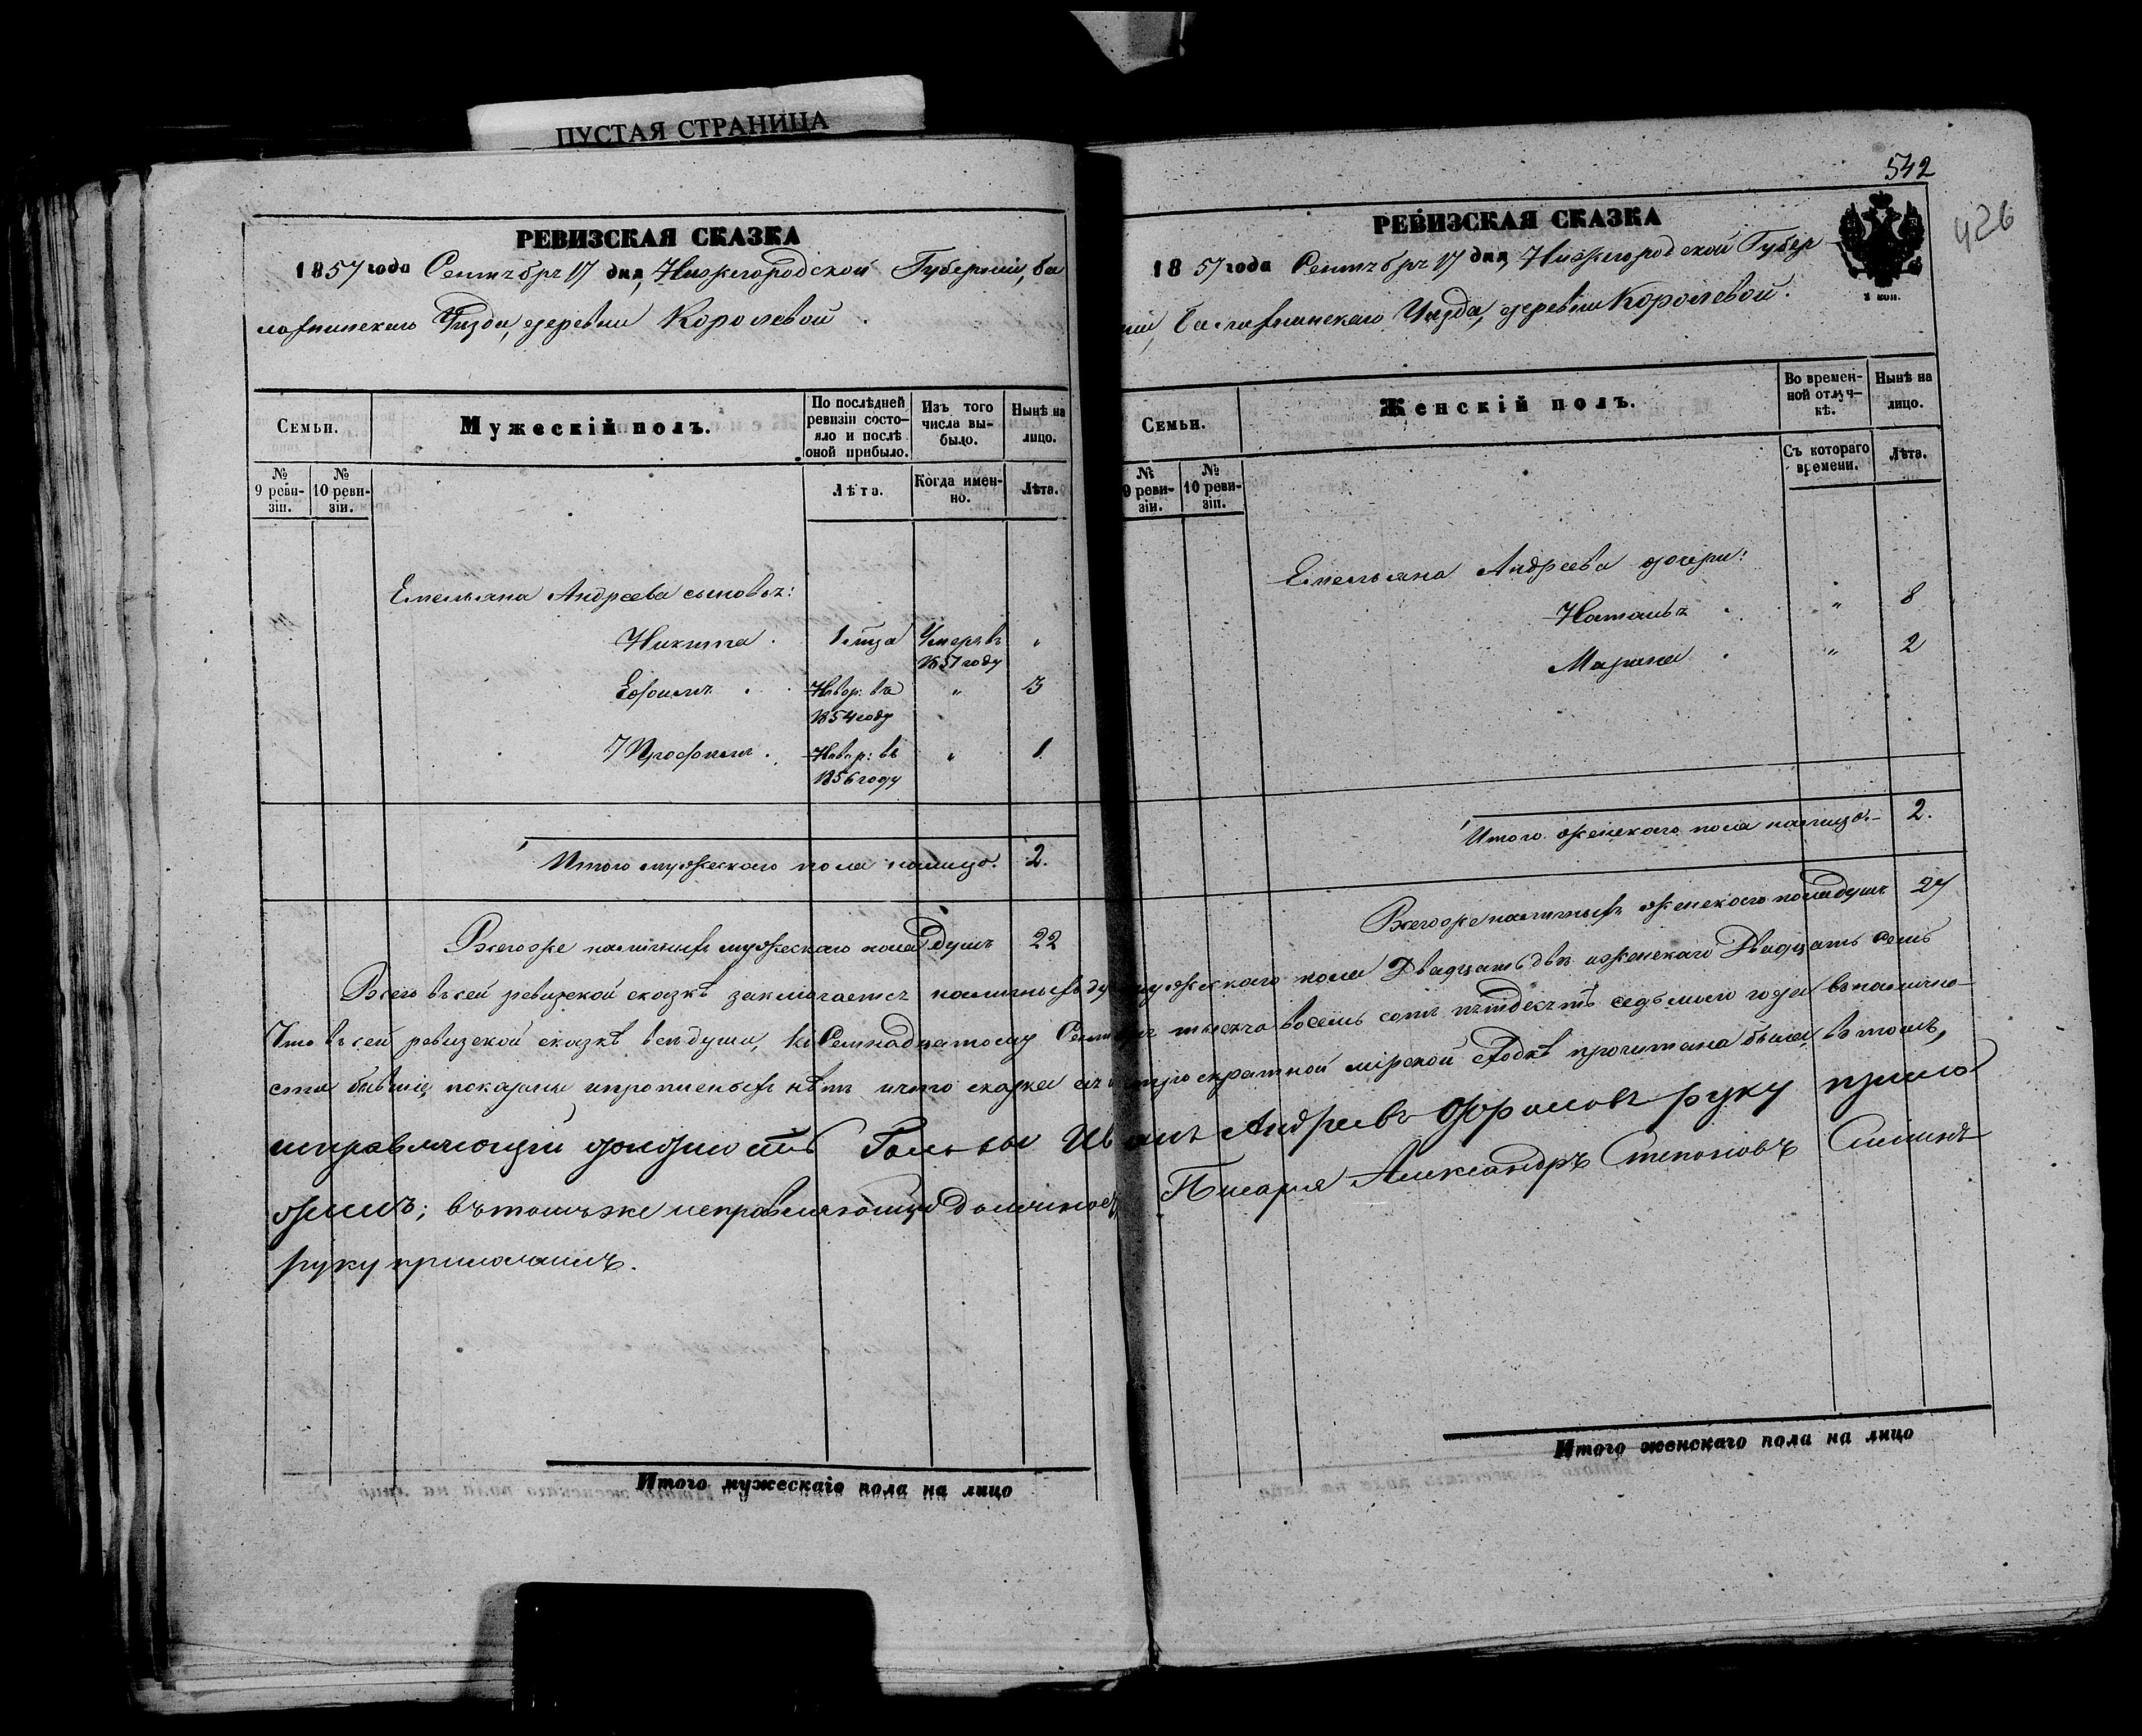 ПУСТАЯ СТРАНИЦА
РЕВИЗСКАЯ СКАЗКА
1857 года Сентября 17 дня, Нижегородской Губерніи, Ба
лахнинскаго Уезда, деревни Королевой
Семьи.
Мужескій полъ.
По послѣдней ревизіи состо-
яло и послѣ оной прибыло.
Изъ того числа вы-
было.
Нынѣ на лицо.
№ 9 реви-
зіи.
№ 10 реви-
зіи.
Лѣта.
Когда имен-
но.
Лѣта.
Емельяна Андреева сыновья:
Никита . Умеръ въ "
1857 году
Ефимъ . Новор: въ " 3
1854 году
Трофимъ . Новор: въ " 1
1856 году
Итого мужескаго пола налицо. 2.
Всего же наличныхъ мужескаго пола душъ 22
Итого мужескаго пола на лицо
542
426
РЕВИЗСКАЯ СКАЗКА
1857 года Сентября 17 дня, Нижегородской Губер
ніи, Балахнинскаго Уезда, деревни Королевой.
1 коп.
Семьи.
Женскій полъ.
Во времен-
ной отлуч-
кѣ.
Нынѣ на лицо.
№ 9 реви-
зіи.
№ 10 реви-
зіи.
Съ котораго времени.
Лѣта.
Емельяна Андреева дочери:
Наталья . " 8
Марина . " 2
Итого женскаго пола налицо 2.
Всего же наличныхъ женскаго пола душъ 27
Всего въ сей ревизской сказкѣ заключается наличныхъ мужескаго пола Двадцать двѣ и женскаго Двадцать семь
Что въ сей ревизской сказкѣ всѣ души, къ Семнадцатому Сентября тысяча восемь сотъ пятдесятъ седьмаго года въ налично-
сти бывшія показаны и прописныхъ нѣтъ и что сказка сія троекратной мірской сходкѣ прочитана была, въ томъ,
исправляющій должность Головы Иванъ Андреевъ руку прило
жилъ; въ томъ же исправляющій должность Писаря Александръ Степановъ
руку приложилъ.
Итого женскаго пола на лицо